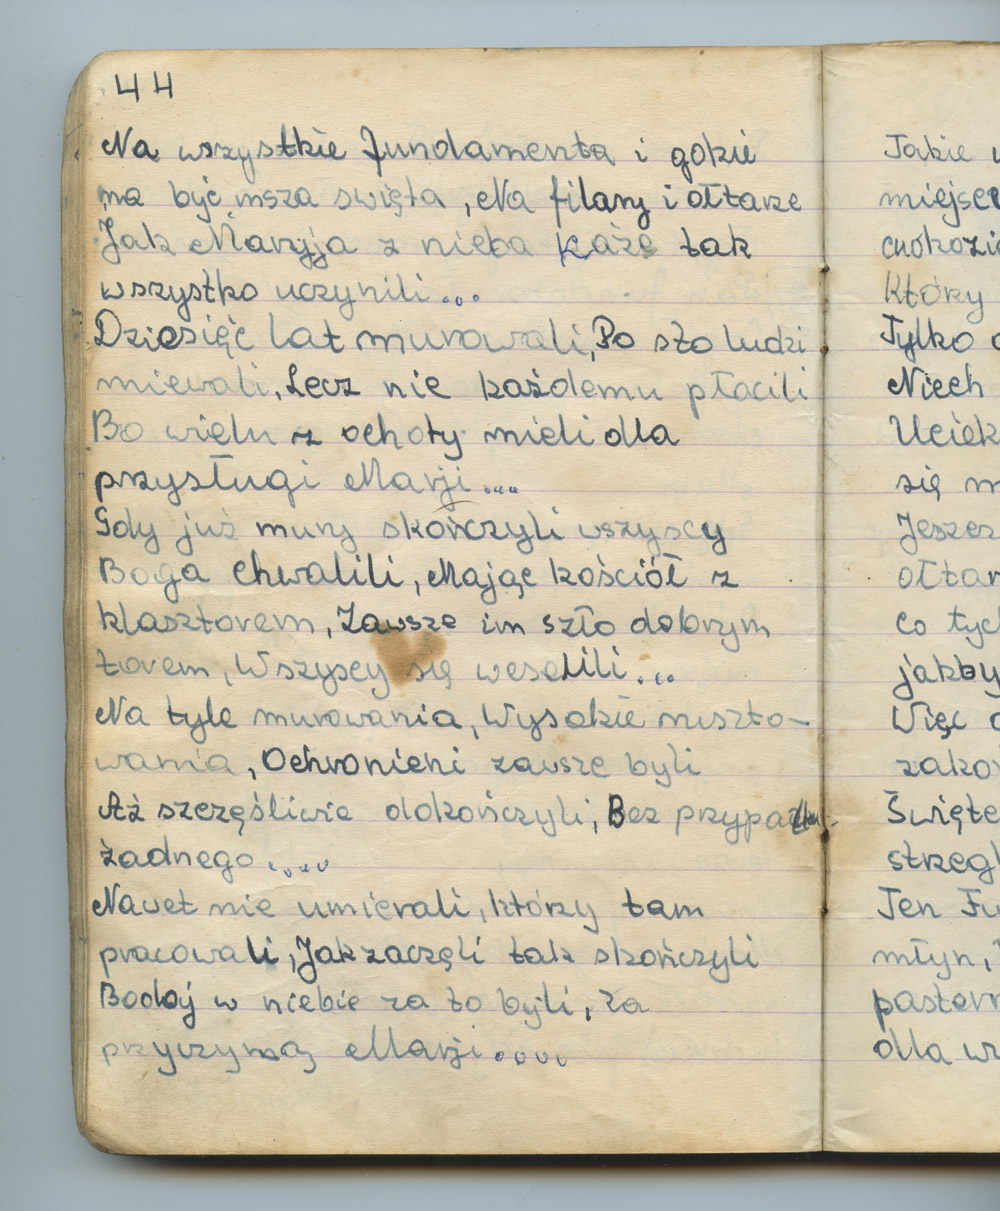 44
Na wszystkie fundamenta i gdzie
ma być msza święta, Na filary i ołtarze
Jak Maryja z nieba każe tak
wszystko uczynili...
Dziesięć lat murowali, Po sto ludzi
miewali, Lecz nie każdemu płacili
Bo wielu z ochoty mieli dla
przysługi Marji...
Gdy już mury skończyli wszyscy
Boga chwalili, Mając kościół z
klasztorem, Zawsze im szło dobrym
torem, Wszyscy się weselili...
Na tyle murowania, Wysokieruszto-
wania, Ochronieni zawsze byli
Aż szczęśliwie dokończyli, Bez
żadnego....
Nawet nie umierali, którzy tam
pracowali, Jak zaczęli tak skończyli
Bodaj w niebie za to byli, Za
przyczyną Marji....
Jakie
miejsce
Który
Tylko
Niech
Uciek
się
Jeszcz
ołtar
co tych
jakby
Więc
zakon
Święte
strzegł
Ten Fu
młyn,
pastern
dla wr